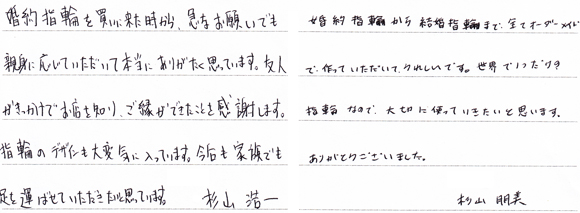 婚約指輪を買いに来た時から、急なお願いでも
親身に応じていただいて本当にありがたく思っています。友人
がきっかけでお店を知り、ご縁ができたことを感謝します。
指輪のデザインも大変気に入っています。今后も家族でも
足を運ばせていただきたいと思っています。 杉山 浩一
婚約指輪から結婚指輪まで、全てオーダーメイド
で、作っていただいて、うれしいです。世界で1つだけの
指輪なので、大切に使っていきたいと思います。
ありがとうございました。
杉山 朋美